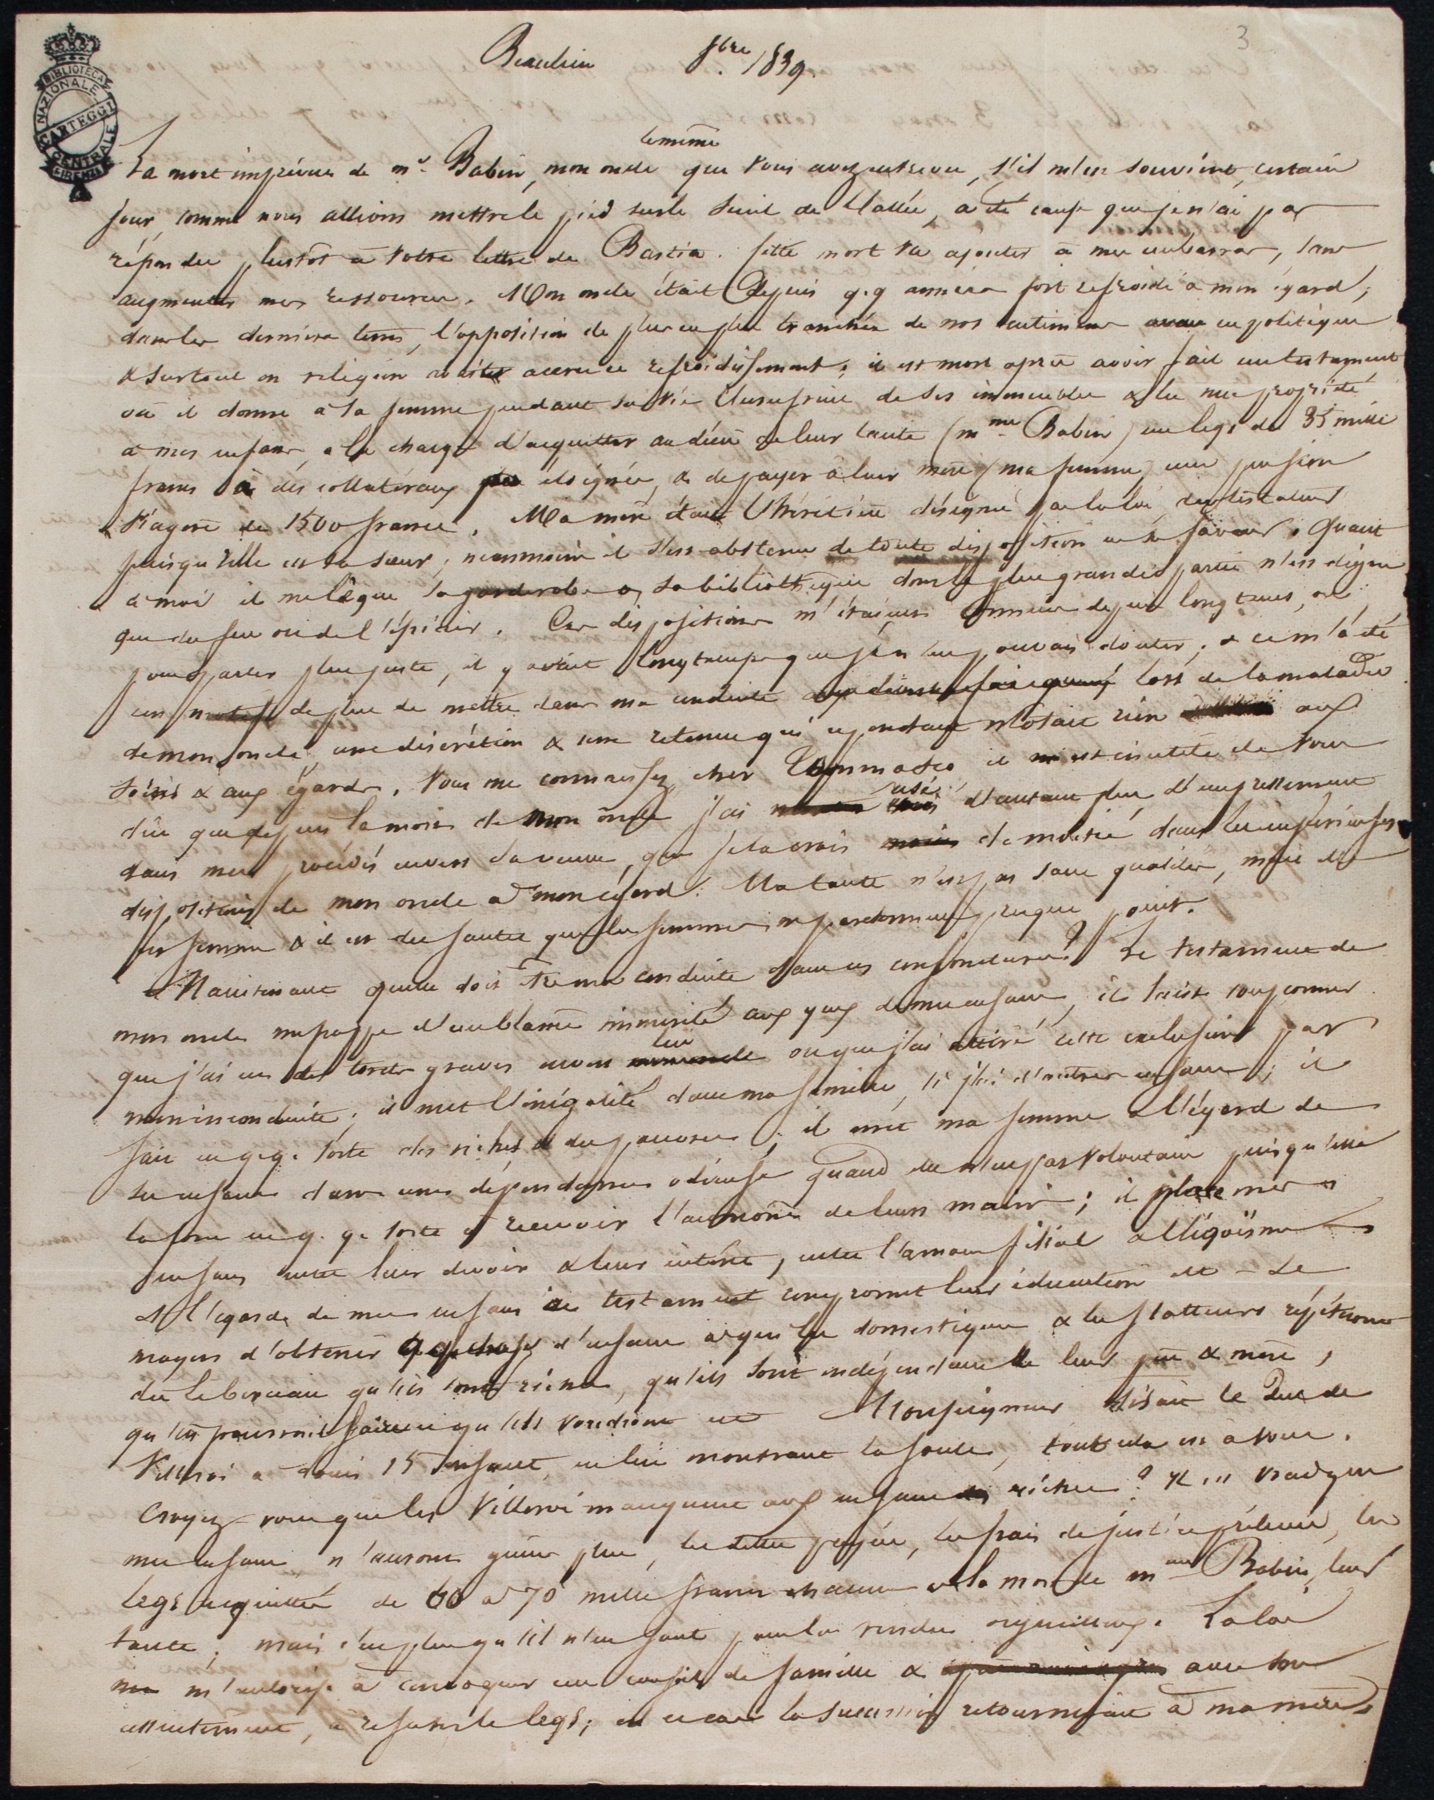 3
BIBLIOTECA NAZIONALE CENTRALE FIRENZE
CARTEGGI
Beaulieu 8bre 1839.
lemême
La mort imprévue de mr. Babin, mon oncle que vous avez entrevu, s'il m'en souvient, certain
jour, comme nous allions mettre le pied sur le seuil de l'allée, a été cause que je n'ai pas
répondu plustôt à votre lettre de Bastia. Cette mort va ajouter à mes embarras, sans
augmenter mes ressources. Mon oncle était depuis q.q années fort refroidi à mon égard;
dans les derniers tems, l'opposition de plus en plus tranchée de nos sentimens en politique
& surtout en religion avait accru ce refroidissement; il est mort après avoir fait un testament
où il donne à sa femme pendant sa vie l'usufruit de ses immeubles & la nue propriété
à mes enfans, à la charge d'acquitter au décès de leur tante (mme Babin) un legs de 35 mille
francs à des collatéraux éloignés, & de payer à leur mère (ma femme) une pension
viagère de 1500 francs. Ma mère était l'héritière désignée par la loi, du testateur
puisqu'elle est sa sœur; néanmoins il s'est abstenu de toute disposition en sa faveur. Quant
à moi il me lègue sa garderobe & sa bibliothèque dont la plus grande partie n'est digne
que du feu ou de l'épicier. Ces dispositions m'étaient connues depuis longtems, ou
pour parler plus juste, il y avait longtemps que je n'en pouvais douter; & ce m'a été
un motif de plus de mettre dans ma conduite lors de la maladie
de mon oncle, une discrétion & une retenue qui cependant n'ôtait rien aux
soins & aux égards. Vous me connaissez, cher Tommaseo, il est inutile de vous
dire que depuis la mort de mon oncle j'ai usé d'autant plus d'empressement
dans mes procédés envers sa veuve, que je la crois de moitié dans les
dispositions de mon oncle à mon égard. Ma tante n'est pas sans qualités, mais elle
est femme & il est des fautes que les femmes ne pardonnent presque point.
Maintenant quelle doit être ma conduite dans ces conjonctures? Le testament de
mon oncle me frappe d'un blâme immérité aux yeux de mes enfans, il laisse soupçonner
que j'ai eu des torts graves envers lui ou que j'ai attiré cette exclusion par
mon inconduite; il met l'inégalité dans ma famille, si j'ai d'autres enfans; il
fait en q.q. sorte des riches & des pauvres; il met ma femme à l'égard de
ses enfans dans une dépendance odieuse quand elle n'est pas volontaire puisqu'elle
la force en q. q. sorte à recevoir l'aumône de leurs mains; il place mes
enfans entre leur devoir & leur intérêt, entre l'amour filial & l'égoïsme
À l'égard de mes enfans ce testament compromet leur éducation etc - Le
moyen d'obtenir q.q chose d'enfans à qui les domestiques & les flatteurs répéteront
dès le berceau qu'ils sont riches, qu'ils sont indépendans de leur père & mère,
qu'ils pourront faire ce qu'ils voudront etc Monseigneur disait le Duc de
Villeroi à Louis 15 enfant, en lui montrant la foule, tout cela est à vous.
Croyez-vous que les Villeroi manquent aux enfans riches? Il est vrai que
mes enfans n'auront guère plus, les dettes payées, les frais de justice prélevés, les
legs acquittés de 60 à 70 mille francs chacun à la mort de mme Babin, leur
tante; mais c'est plus qu'il n'en faut pour les rendre orgueilleux. La loi
m'autorise à convoquer un conseil de famille & avec son
assentiment, à refuser le legs; en ce cas la succession retournerait à ma mère,